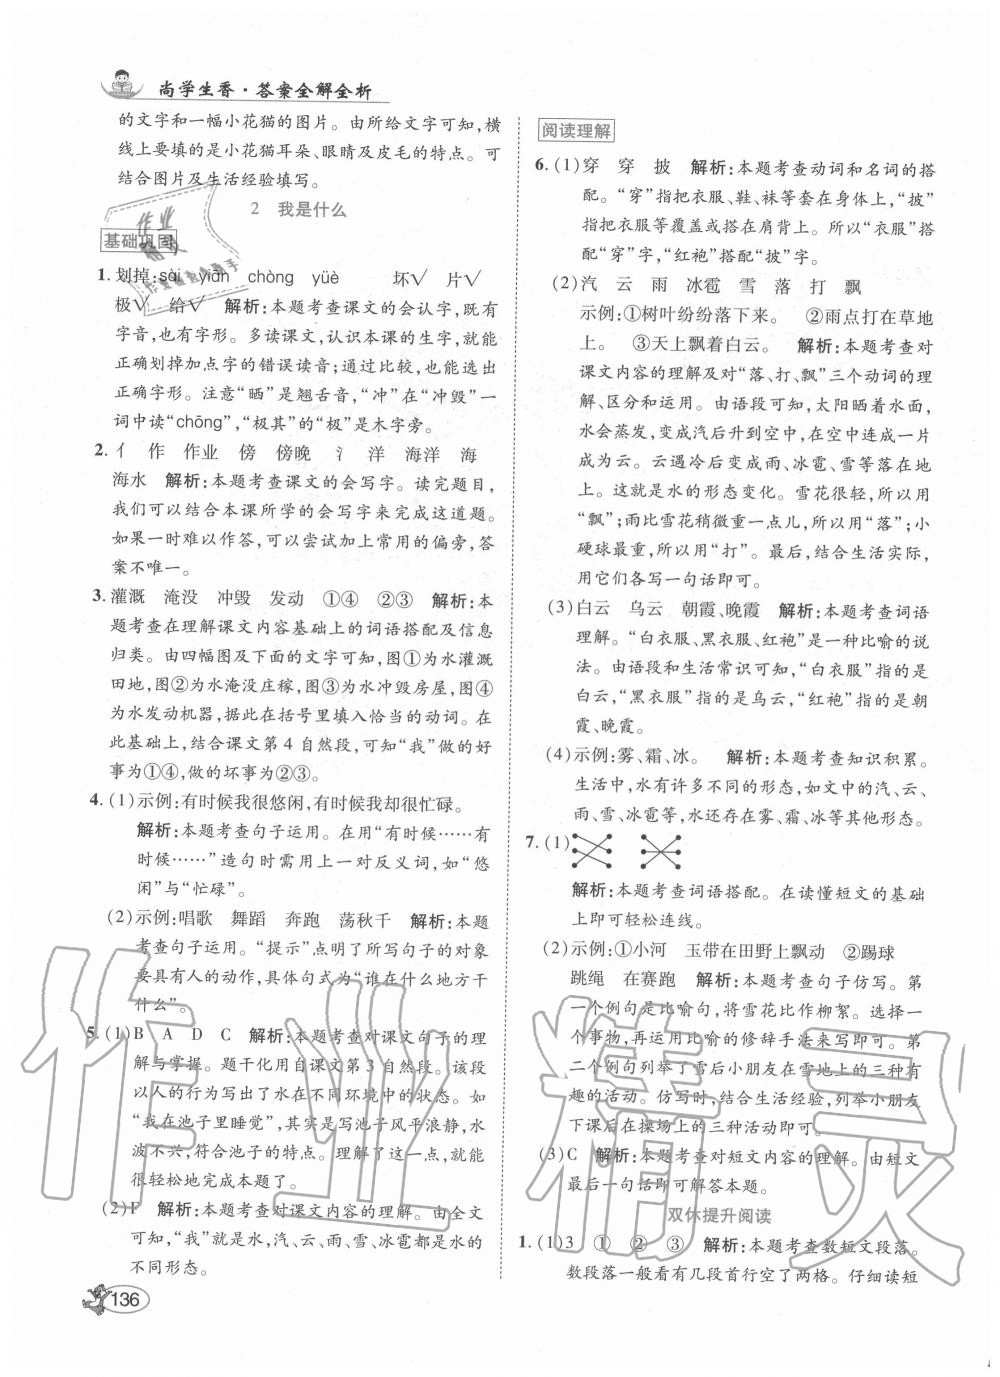 尚学生香·答案全解全析
的文字和一幅小花猫的图片。由所给文字可知,横
线上要填的是小花猫耳朵、眼睛及皮毛的特点。可
结合图片及生活经验填写。
2 我是什么
基础巩固
1. 划掉:sài yiān chòng yüè 坏√ 片√
极√ 给√ 解析:本题考查课文的会认字,既有
字音,也有字形。多读课文,认识本课的生字,就能
正确划掉加点字的错误读音;通过比较,也能选出
正确字形。注意“晒”是翘舌音,“冲”在“冲毁”一
词中读“chōng”,“极其”的“极”是木字旁。
2. 亻 作 作业 傍 傍晚 氵 洋 海洋 海
海水 解析:本题考查课文的会写字。读完题目,
我们可以结合本课所学的会写字来完成这道题。
如果一时难以作答,可以尝试加上常用的偏旁,答
案不唯一。
3. 灌溉 淹没 冲毁 发动 ①④ ②③ 解析:本
题考查在理解课文内容基础上的词语搭配及信息
归类。由四幅图及下面的文字可知,图①为水灌溉
田地,图②为水淹没庄稼,图③为水冲毁房屋,图④
为水发动机器,据此在括号里填入恰当的动词。在
此基础上,结合课文第4自然段,可知“我”做的好
事为①④,做的坏事为②③。
4. (1)示例:有时候我很悠闲,有时候我却很忙碌。
解析:本题考查句子运用。在用“有时候……有
时候……”造句时需用上一对反义词,如“悠
闲”与“忙碌”。
(2)示例:唱歌 舞蹈 奔跑 荡秋千 解析:本题
考查句子运用。“提示”点明了所写句子的对象
要具有人的动作,具体句式为“谁在什么地方干
什么”。
5. (1)B A D C 解析:本题考查对课文句子的理
解与掌握。题干化用自课文第3自然段。该段
以拟人化的行为写出了水在不同环境中的状态。如
“我在池子里睡觉”,其实是写池子风平浪静,水
波不兴,符合池子的特点。理解了这一点,就能
很轻松地完成本题了。
(2)F 解析:本题考查对课文内容的理解。由全文
可知,“我”就是水,汽、云、雨、雪、冰雹都是水的
不同形态。
136
阅读理解
6. (1)穿 穿 披 解析:本题考查动词和名词的搭
配。“穿”指把衣服、鞋、袜等套在身体上,“披”
指把衣服等覆盖或搭在肩背上。所以“衣服”搭
配“穿”字,“红袍”搭配“披”字。
(2)汽 云 雨 冰雹 雪 落 打 飘
示例:①树叶纷纷落下来。 ②雨点打在草地
上。 ③天上飘着白云。 解析:本题考查对
课文内容的理解及对“落、打、飘”三个动词的理
解、区分和运用。由语段可知,太阳晒着水面,
水会蒸发,变成汽后升到空中,在空中连成一片
成为云。云遇冷后变成雨、冰雹、雪等落在地
上。这就是水的形态变化。雪花很轻,所以用
“飘”;雨比雪花稍微重一点儿,所以用“落”;小
硬球最重,所以用“打”。最后,结合生活实际,
用它们各写一句话即可。
(3)白云 乌云 朝霞、晚霞 解析:本题考查词语
理解。“白衣服、黑衣服、红袍”是一种比喻的说
法。由语段和生活常识可知,“白衣服”指的是
白云,“黑衣服”指的是乌云,“红袍”指的是朝
霞、晚霞。
(4)示例:雾、霜、冰。 解析:本题考查知识积累。
生活中,水有许多不同的形态,如文中的汽、云、
雨、雪、冰雹等,水还存在雾、霜、冰等其他形态。
7. (1)
解析:本题考查词语搭配。在读懂短文的基础
上即可轻松连线。
(2)示例:①小河 玉带在田野上飘动 ②踢球
跳绳 在赛跑 解析:本题考查句子仿写。第
一个例句是比喻句,将雪花比作柳絮。选择一
个事物,再运用比喻的修辞手法来写即可。第
二个例句列举了雪后小朋友在雪地上的三种有
趣的活动。仿写时,结合生活经验,列举小朋友
下课后在操场上的三种活动即可。
(3)C 解析:本题考查对短文内容的理解。由短文
最后一句话即可解答本题。
双休提升阅读
1. (1)3 ① ② ③ 解析:本题考查数短文段落。
数段落一般看有几段首行空了两格。仔细读短
作业精灵